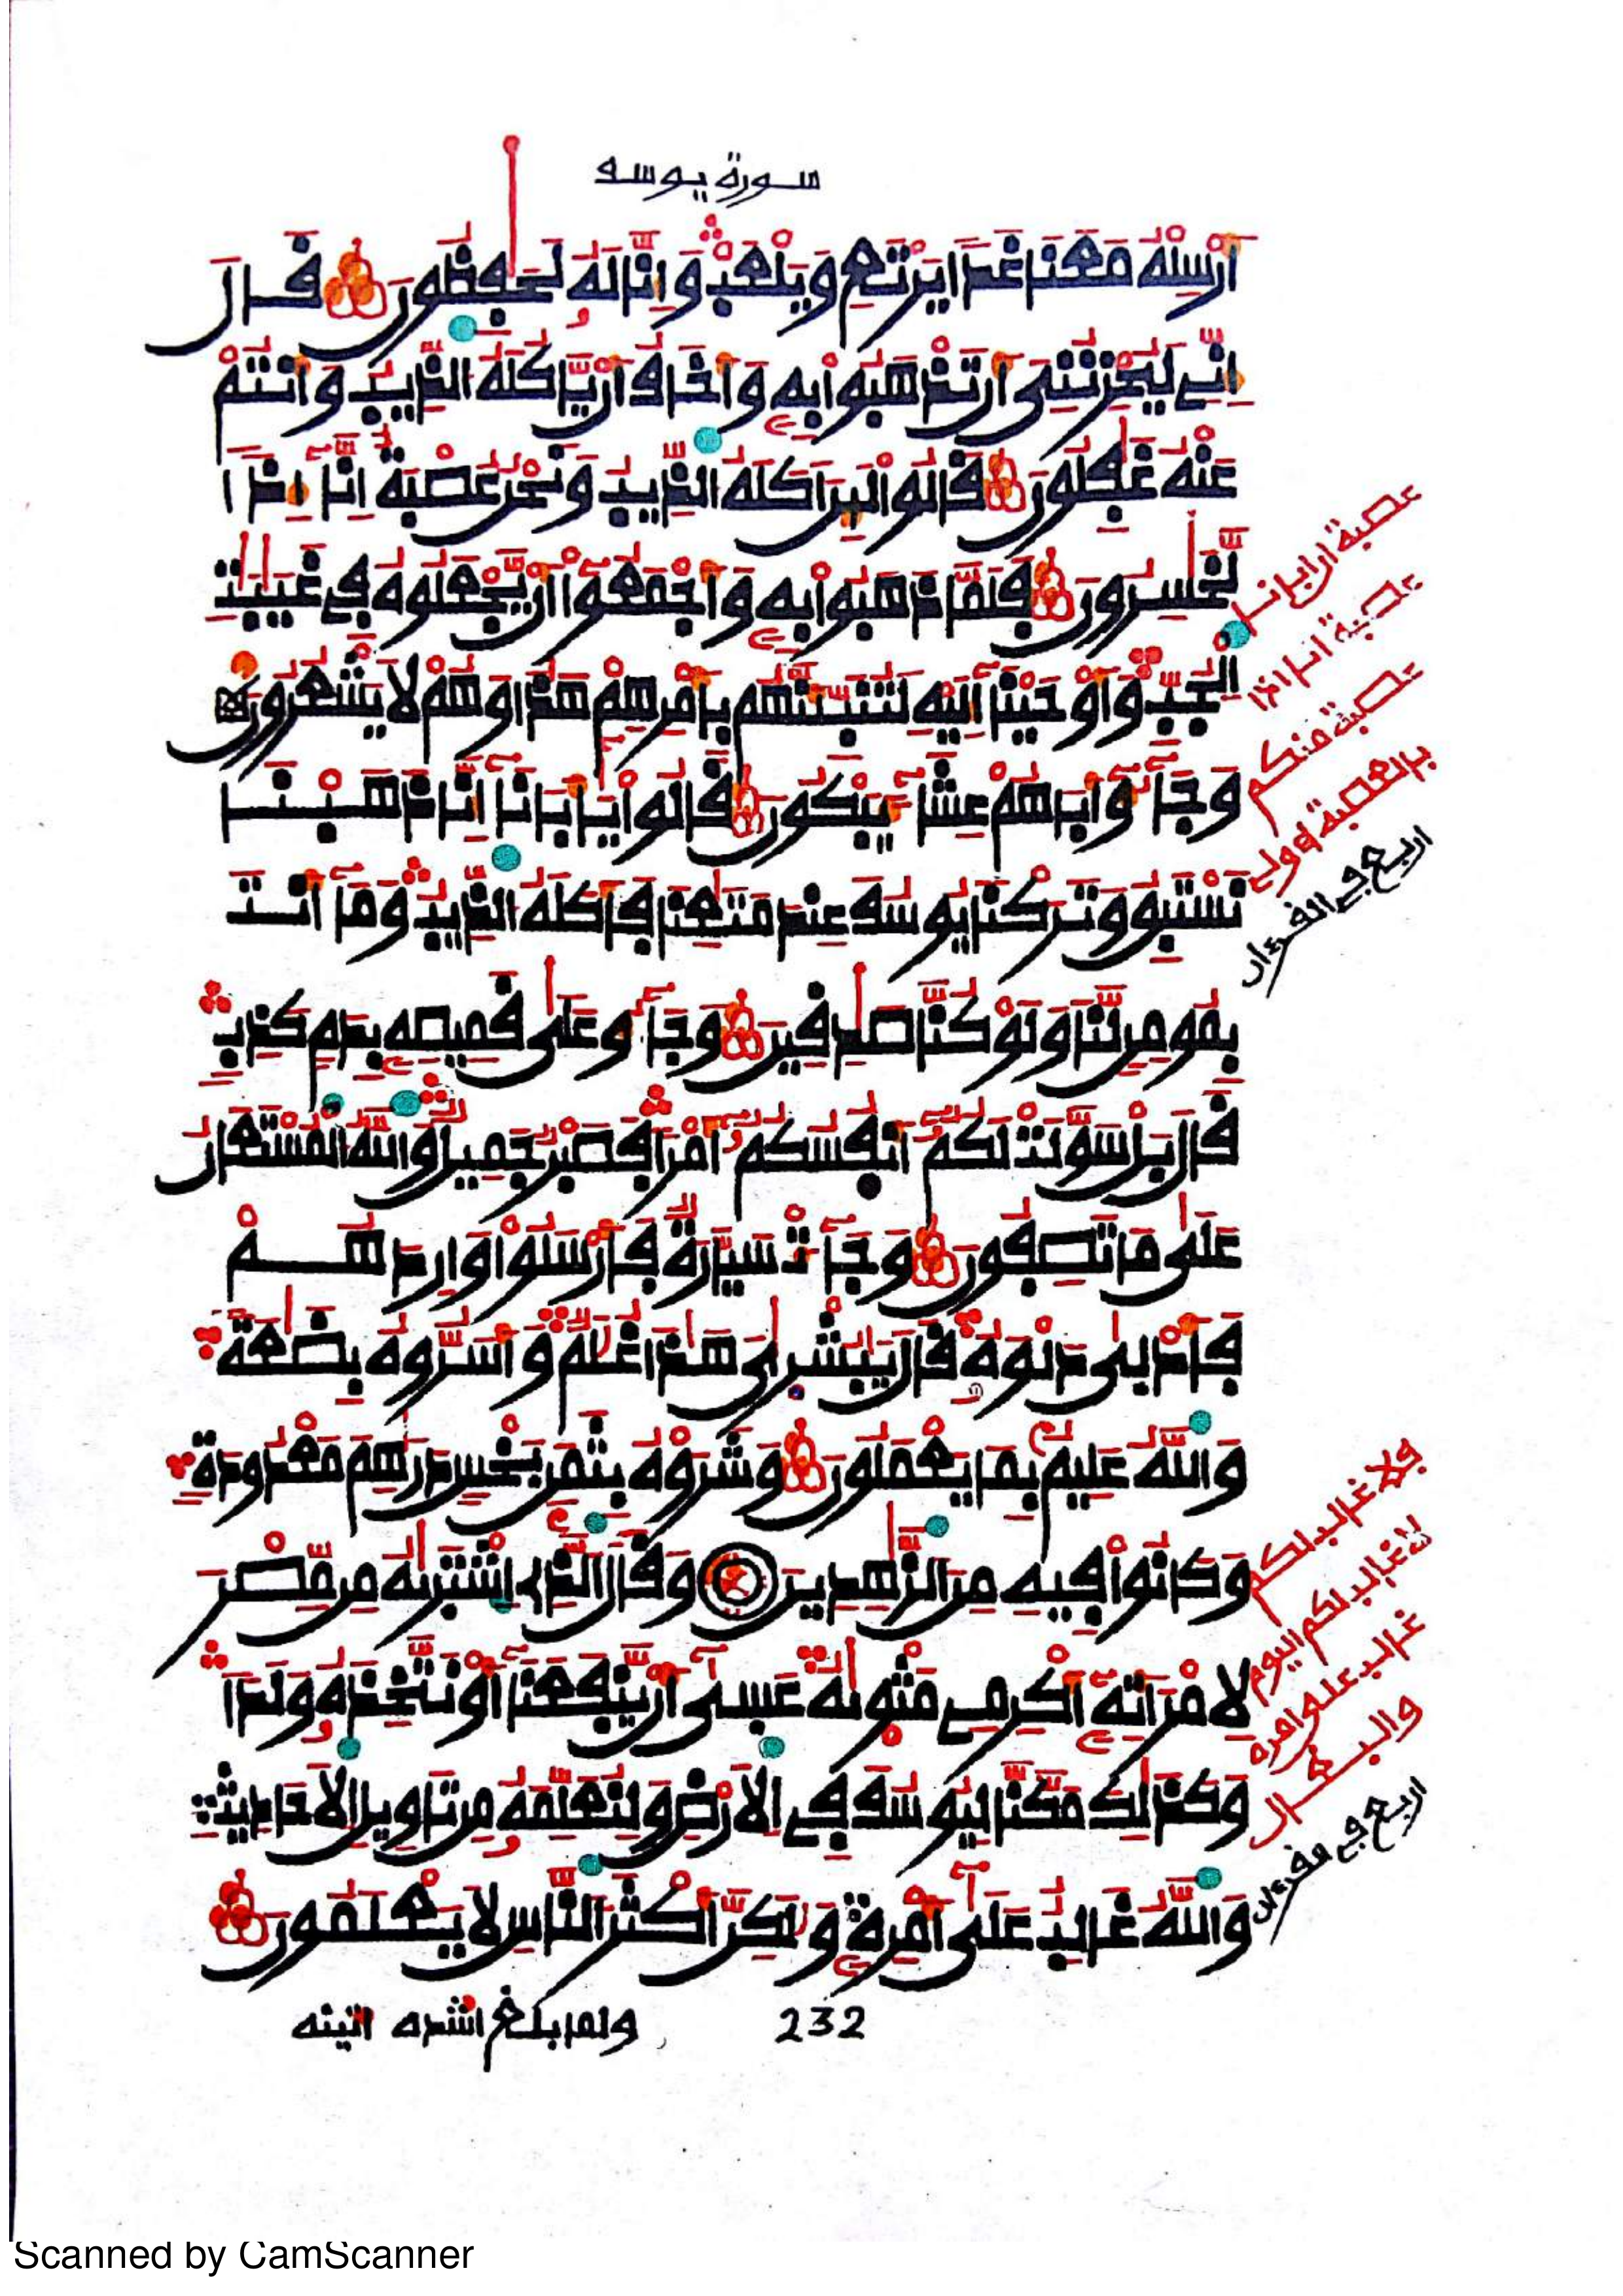 سورة يوسف
أَرْسِلْهُ مَعَنَا غَدًا يَرْتَعِ وَيَلْعَبْ وَإِنَّا لَهُ لَحَٰفِظُونَ قَالَ
إِنِّي لَيُحْزِنُنِي أَن تَذْهَبُوا بِهِ وَأَخَافُ أَن يَّاكُلَهُ الذِّيبُ وَأَنتُمْ
عَنْهُ غَٰفِلُونَ قَالُوا لَئِنَ اَكَلَهُ الذِّيبُ وَنَحْنُ عُصْبَةٌ إِنَّا إِذًا
لَّخَٰسِرُونَ فَلَمَّا ذَهَبُوا بِهِ وَأَجْمَعُوا أَن يَّجْعَلُوهُ فِي غَيَٰبَٰتِ
الْجُبِّ وَأَوْحَيْنَا إِلَيْهِ لَتُنَبِّئَنَّهُم بِأَمْرِهِمْ هَٰذَا وَهُمْ لَا يَشْعُرُونَ
وَجَآءُو أَبَاهُمْ عِشَآءً يَبْكُونَ قَالُوا يَٰأَبَانَا إِنَّا ذَهَبْنَا
نَسْتَبِقُ وَتَرَكْنَا يُوسُفَ عِندَ مَتَٰعِنَا فَأَكَلَهُ الذِّيبُ وَمَا أَنتَ
بِمُومِنٍ لَّنَا وَلَوْ كُنَّا صَٰدِقِينَ وَجَآءُو عَلَىٰ قَمِيصِهِ بِدَمٍ كَذِبٍ
قَالَ بَلْ سَوَّلَتْ لَكُمُ أَنفُسُكُمُ أَمْرًا فَصَبْرٌ جَمِيلٌ وَاللَّهُ الْمُسْتَعَانُ
عَلَىٰ مَا تَصِفُونَ وَجَآءَتْ سَيَّارَةٌ فَأَرْسَلُوا وَارِدَهُمْ
فَأَدْلَىٰ دَلْوَهُ قَالَ يَٰبُشْرَٰىَ هَٰذَا غُلَٰمٌ وَأَسَرُّوهُ بِضَٰعَةً
وَاللَّهُ عَلِيمٌ بِمَا يَعْمَلُونَ وَشَرَوْهُ بِثَمَنٍ بَخْسٍ دَرَٰهِمَ مَعْدُودَةٍ
وَكَانُوا فِيهِ مِنَ الزَّٰهِدِينَ وَقَالَ الَّذِي اشْتَرَىٰهُ مِن مِّصْرَ
لِامْرَأَتِهِ أَكْرِمِي مَثْوَىٰهُ عَسَىٰ أَن يَّنفَعَنَا أَوْ نَتَّخِذَهُ وَلَدًا
وَكَذَٰلِكَ مَكَّنَّا لِيُوسُفَ فِي الْأَرْضِ وَلِنُعَلِّمَهُ مِن تَاوِيلِ الْأَحَادِيثِ
وَاللَّهُ غَالِبٌ عَلَىٰ أَمْرِهِ وَلَٰكِنَّ أَكْثَرَ النَّاسِ لَا يَعْلَمُونَ
ولما بلغ أشده اتينه
232
عصبة ان ابانا
عصبة انا اذا
عصبة منكم
بالعصبة اولي
اربع في القرءان
فلا غالب لكم
لا غالب لكم اليوم
غالب على امره
اربع في القرءان
Scanned by CamScanner